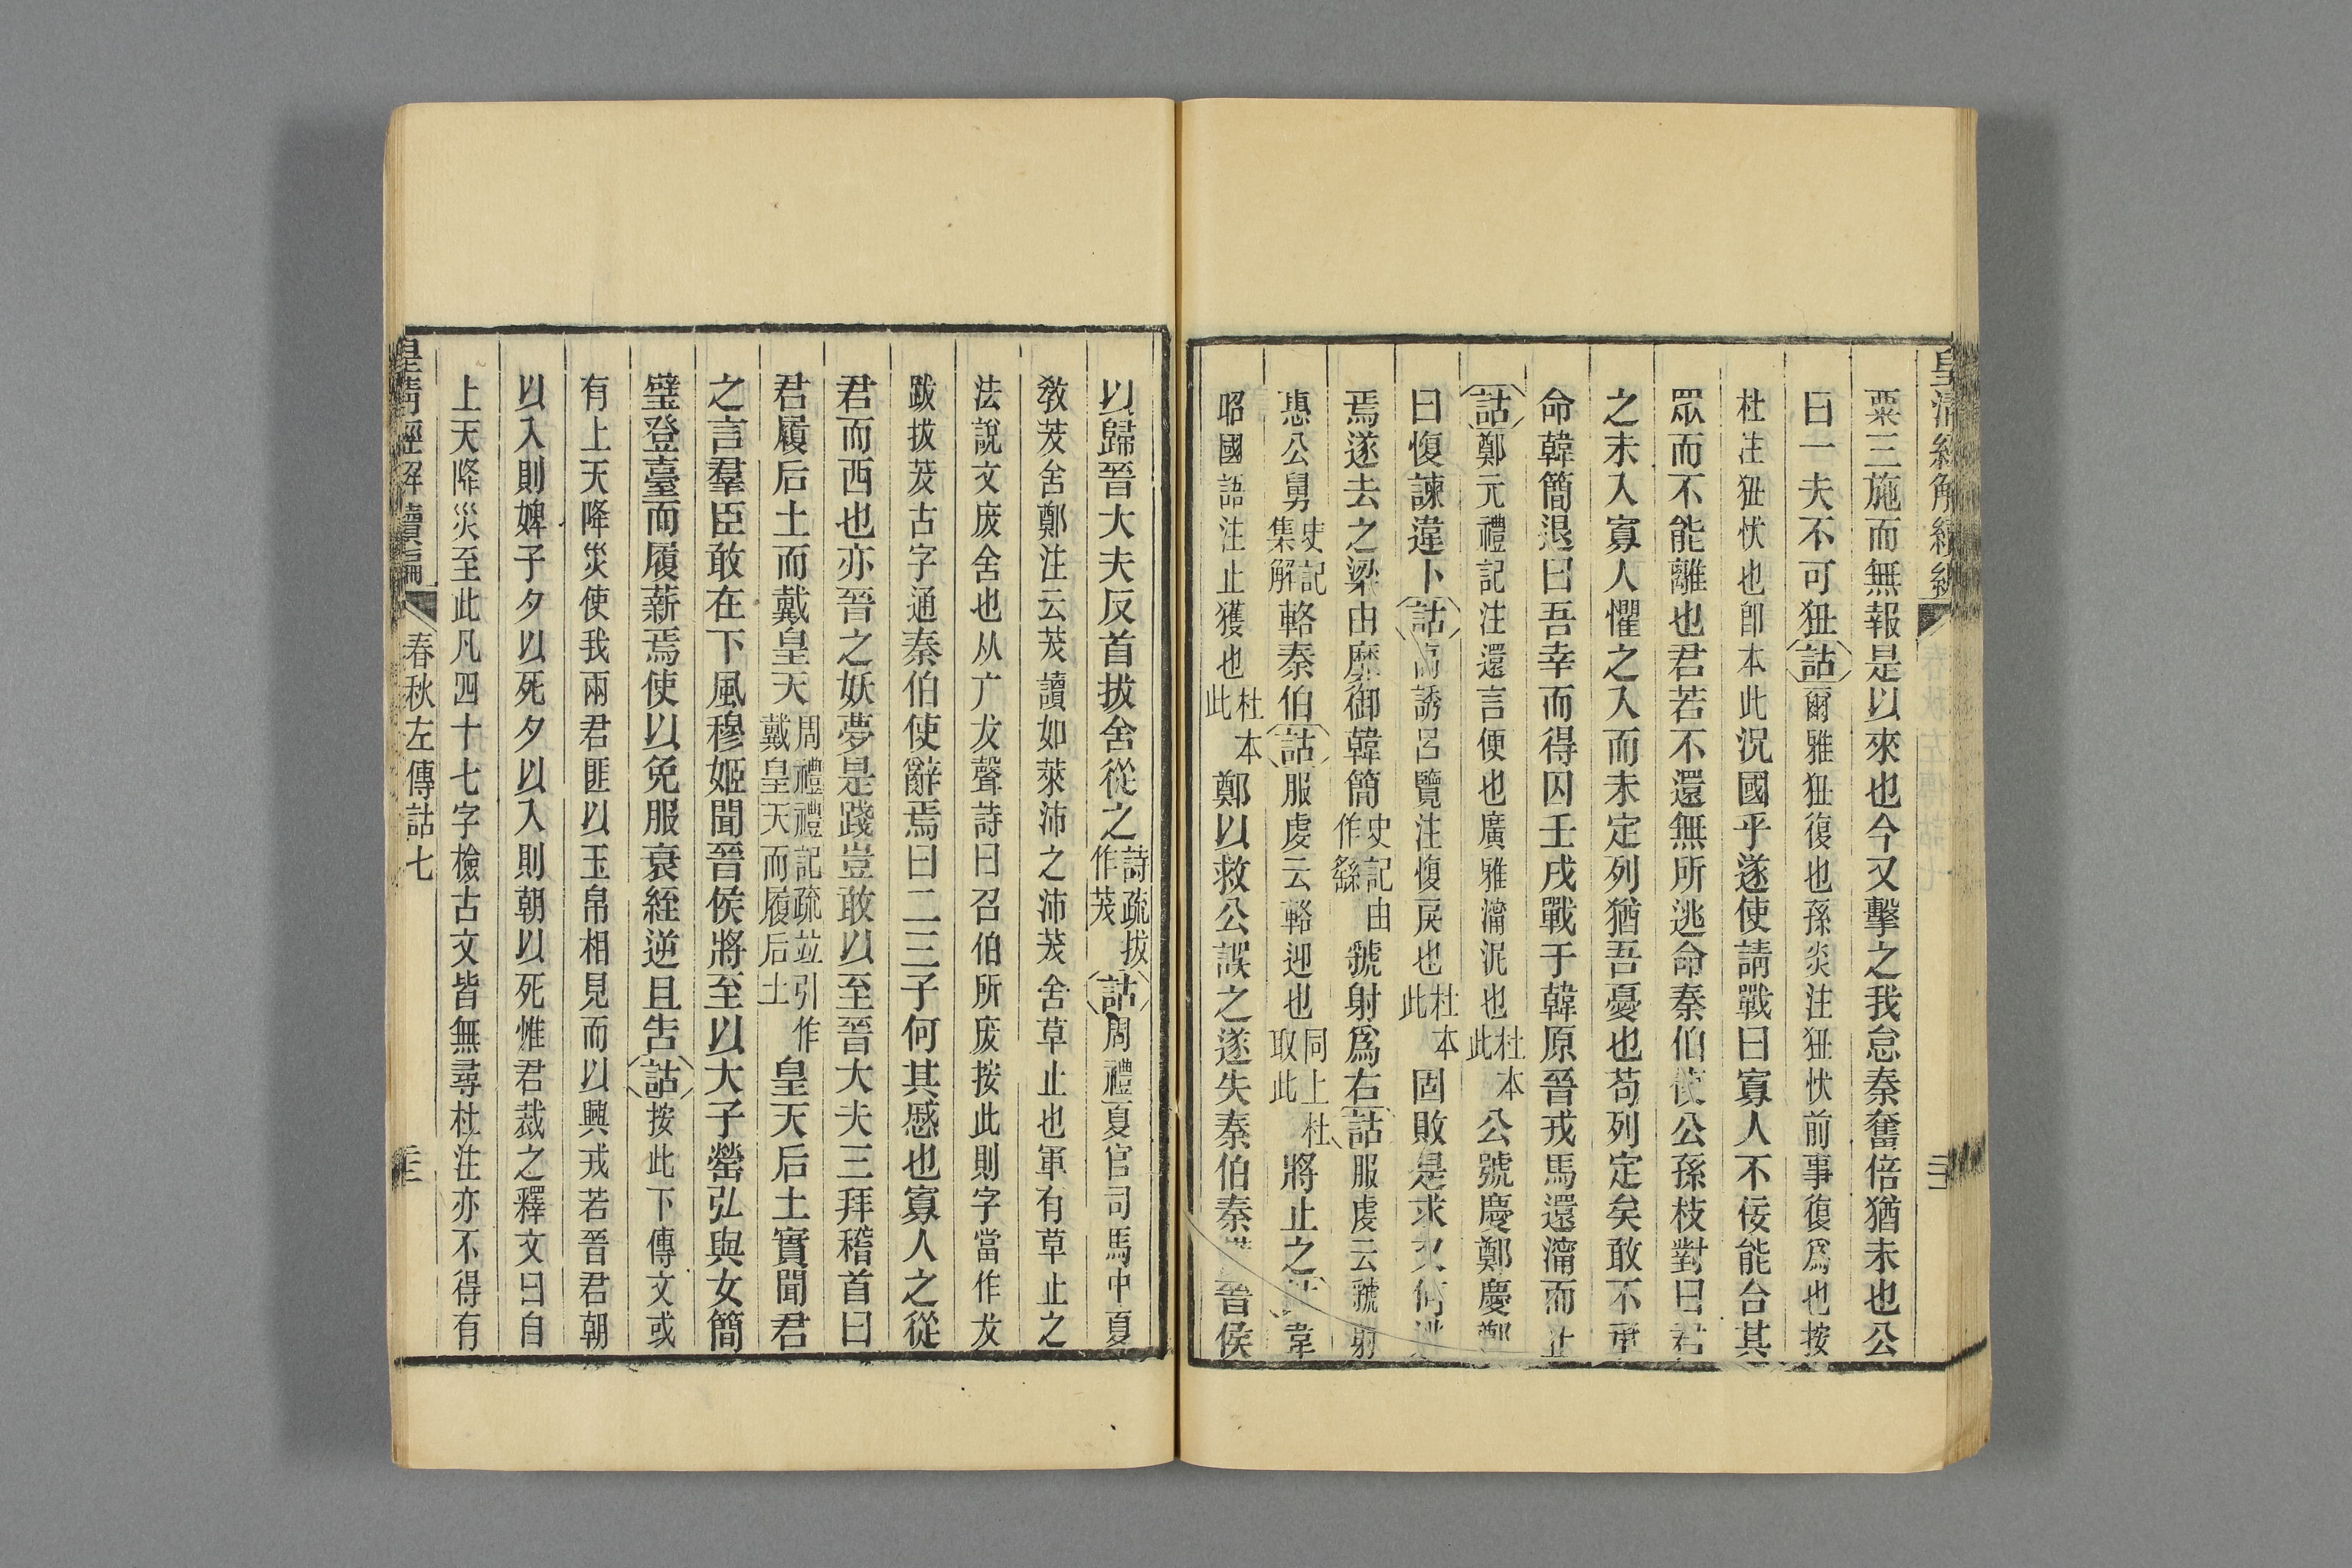 粟三施而無報是以來也今又擊之我怠秦奮倍猶未也公
曰一夫不可狃詁爾雅狃復也孫炎注狃忕前事復爲也按
杜注狃忕也卽本此況國乎遂使請戰曰寡人不佞能合其
眾而不能離也君若不還無所逃命秦伯使公孫枝對曰君
之未入寡人懼之入而未定列猶吾憂也苟列定矣敢不承
命韓簡退曰吾幸而得囚壬戌戰于韓原晉戎馬還濘而止
詁鄭元禮記注還言便也廣雅濘泥也杜本此公號慶鄭慶鄭
曰愎諫違卜詁高誘呂覽注愎戾也杜本此固敗是求又何逃
焉遂去之梁由靡御韓簡史記由作繇虢射爲右詁服虔云虢射
惠公舅史記集解輅秦伯詁服虔云輅迎也同上杜取此將止之詁韋
昭國語注止獲也杜本此鄭以救公誤之遂失秦伯秦獲晉侯
以歸晉大夫反首拔舍從之詩疏拔作茇詁周禮夏官司馬中夏
敎茇舍鄭注云茇讀如萊沛之沛茇舍草止也軍有草止之
法說文废舍也从广犮聲詩曰召伯所废按此則字當作犮
跋拔茇古字通秦伯使辭焉曰二三子何其慼也寡人之從
君而西也亦晉之妖夢是踐豈敢以至晉大夫三拜稽首曰
君履后土而戴皇天周禮禮記疏竝引作戴皇天而履后土皇天后土實聞君
之言羣臣敢在下風穆姬聞晉侯將至以大子罃弘與女簡
璧登臺而履薪焉使以免服衰絰逆且告詁按此下傳文或
有上天降災使我兩君匪以玉帛相見而以興戎若晉君朝
以入則婢子夕以死夕以入則朝以死惟君裁之釋文曰自
上天降災至此凡四十七字檢古文皆無尋杜注亦不得有
皇淸經解續編 春秋左傳詁七